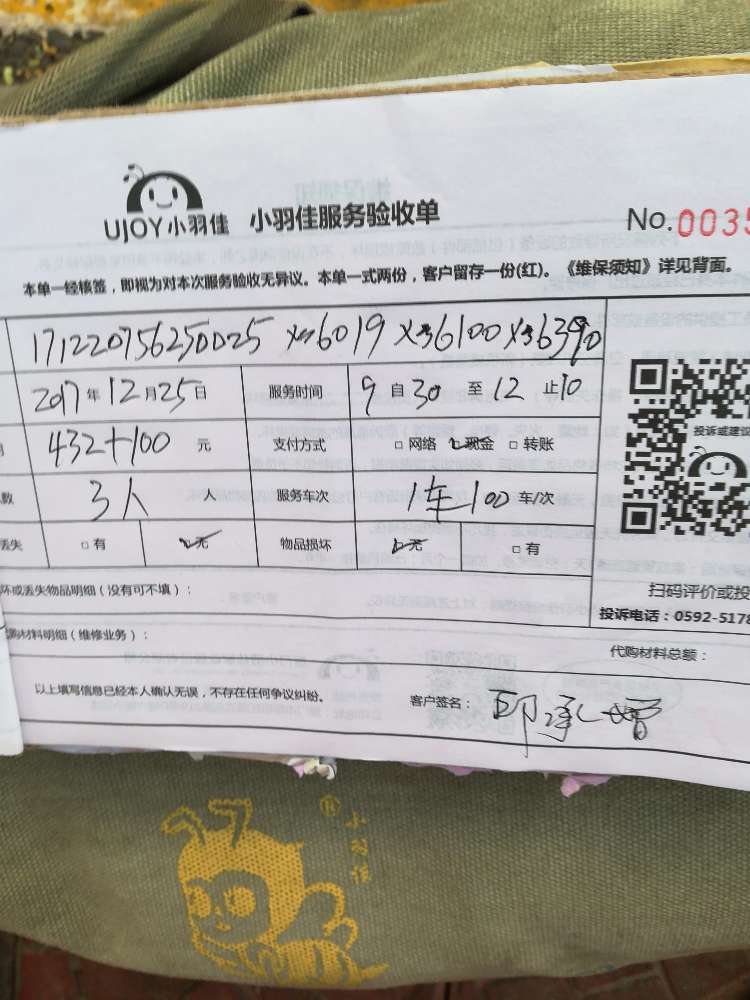 UJOY小羽佳 小羽佳服务验收单 No.0035
本单一经核签，即视为对本次服务验收无异议。本单一式两份，客户留存一份(红)。《维保须知》详见背面。
171220756250025 6019 6100 6390
2017年12月25日 服务时间 9自30至12止10
432+100 元 支付方式 □网络 现金 □转账
数 3人 人 服务车次 1车100车/次
投诉或建议
丢失 □有 无 物品损坏 无 □有
坏或丢失物品明细（没有可不填）： 扫码评价或投
投诉电话：0592-5178
购材料明细（维修业务）： 代购材料总额：
以上填写信息已经本人确认无误，不存在任何争议纠纷。 客户签名： 邱承
®小羽佳